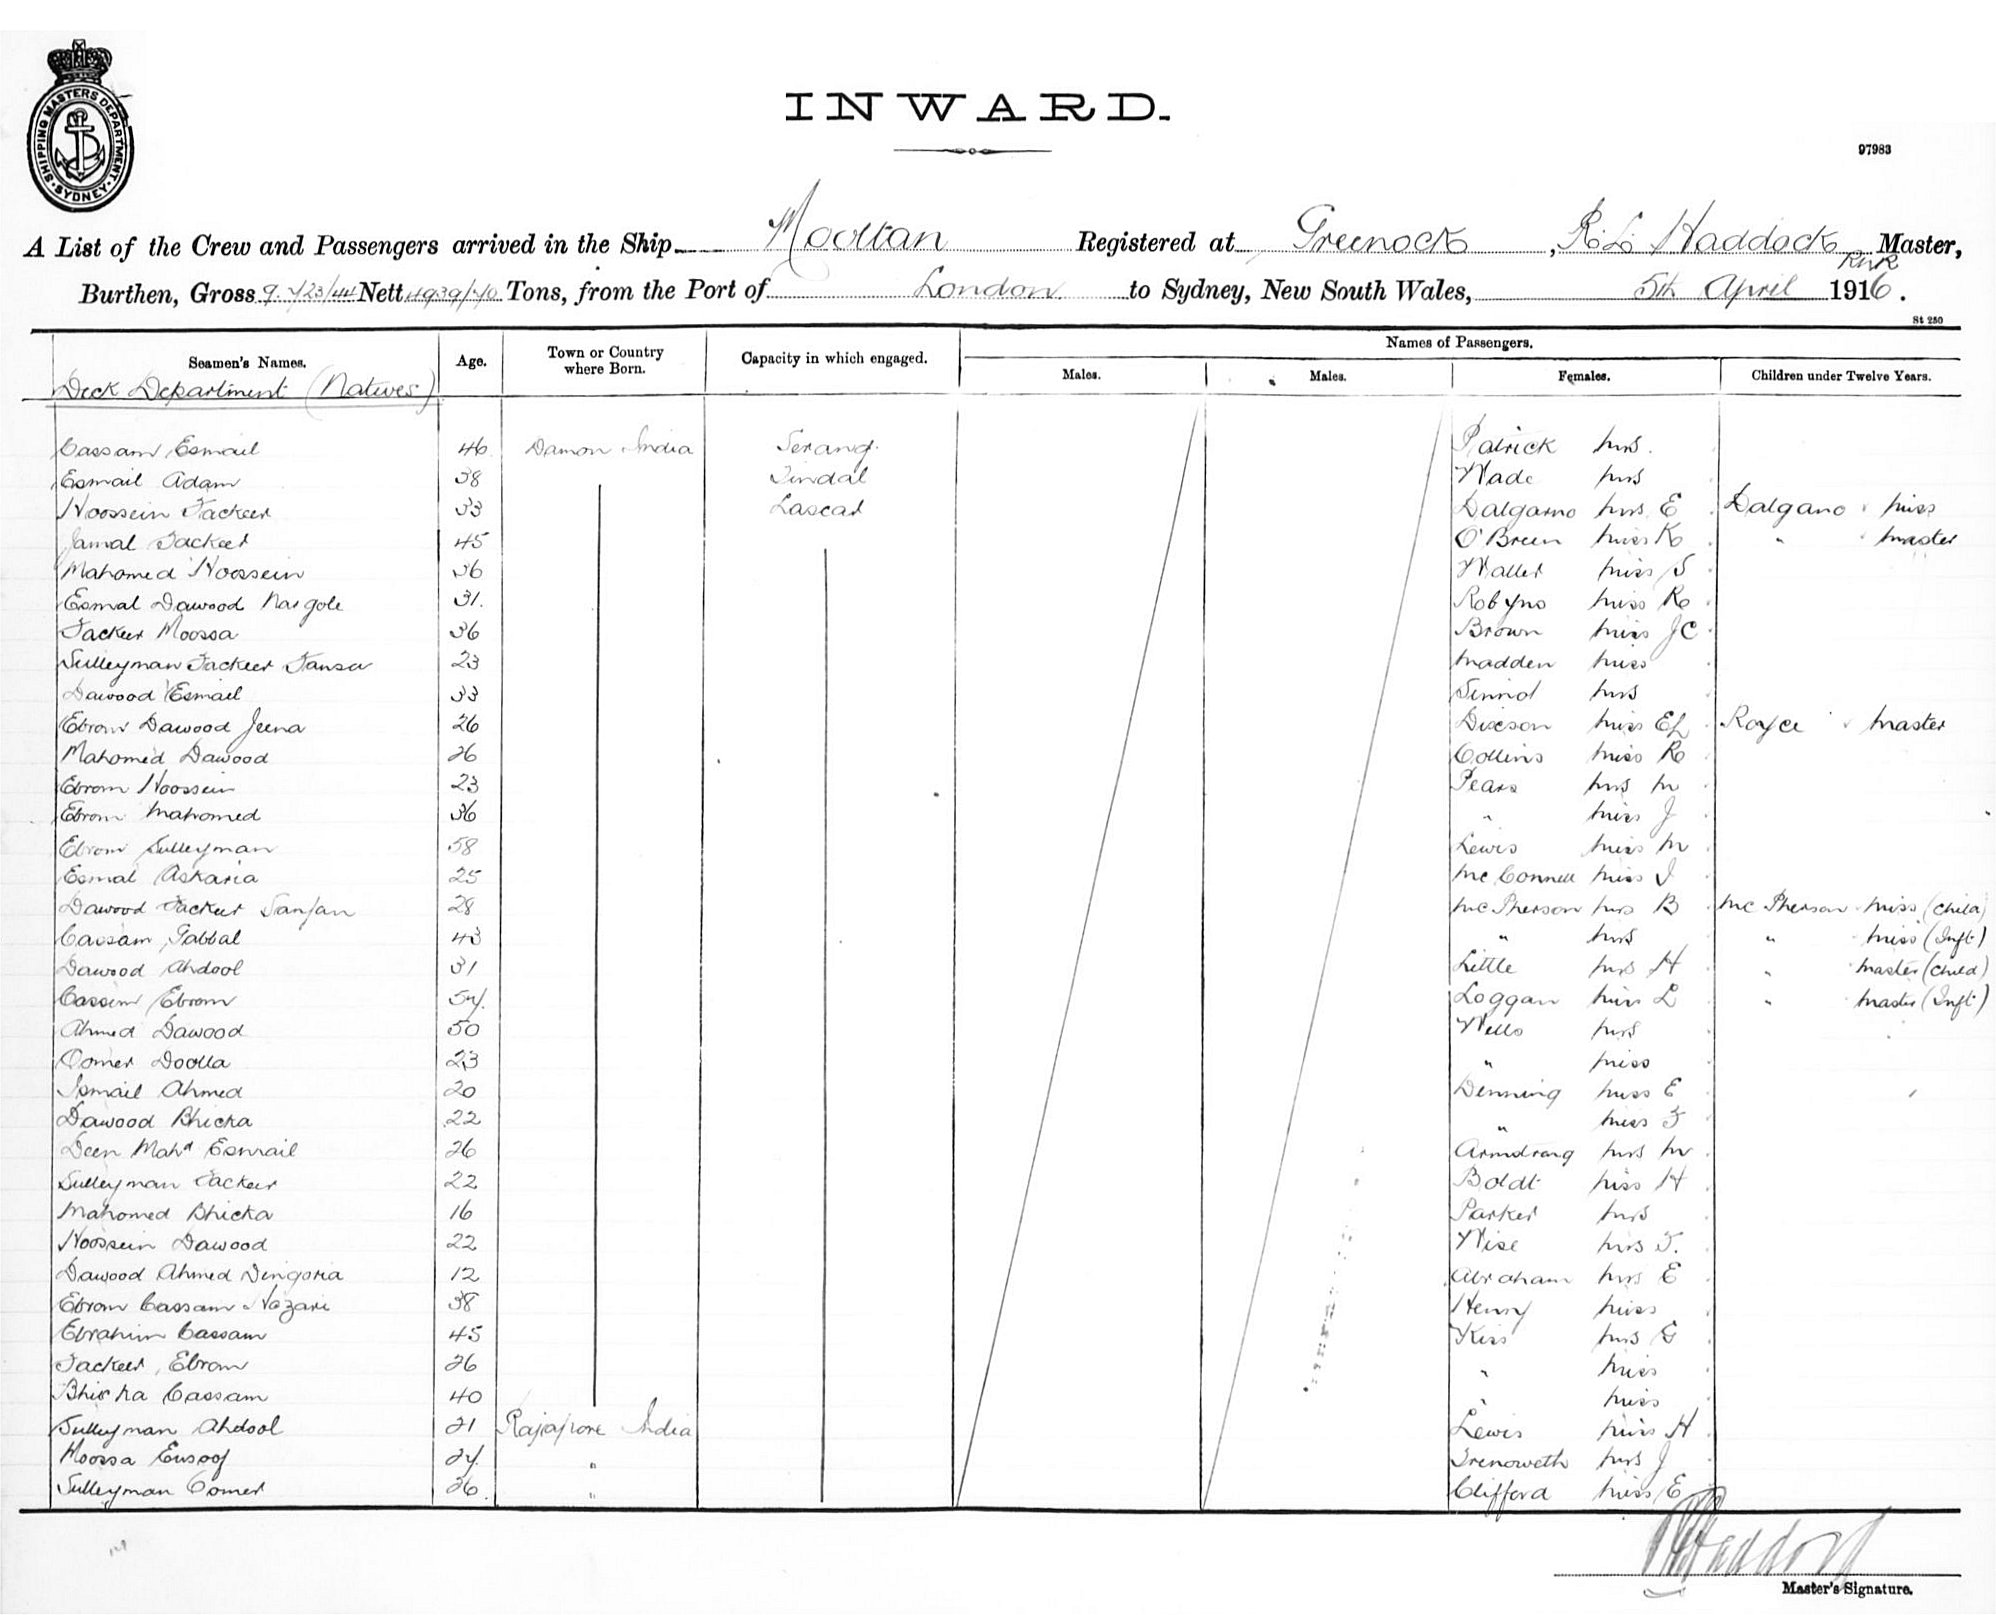 SHIPPING MASTERS DEPARTMENT · SYDNEY ·
INWARD.
97983
A List of the Crew and Passengers arrived in the Ship Mooltan Registered at Greenock, R. L. Haddock Master,
RNR
Burthen, Gross Nett Tons, from the Port of London to Sydney, New South Wales, 5th April 1916.
St 250
Seamen's Names. Age. Town or Country where Born. Capacity in which engaged. Names of Passengers.
Males. Males. Females. Children under Twelve Years.
Deck Department (Natives)
Cassam Esmail 46 Damon India Serang Patrick Mrs.
Esmail Adam 38 Tindal Wade Mrs
Hoossein Fackeer 33 Lascar Dalgarno Mrs. E Dalgano Miss
Jamal Fackeer 45 O'Breen Miss K " Master
Mahomed Hoossein 36 Waller Miss S
Esmal Dawood Nargole 31. Robyns Miss R
Fackeer Moossa 36 Brown Miss J C
Sulleyman Fackeer Fansa 23 Madden Miss
Dawood Esmail 33 Mrs
Ebrom Dawood Jeena 26 Dixson Miss EL Royce Master
Mahomed Dawood 26 Collins Miss R
Ebrom Hoossein 23 Pears Mrs M
Ebrom Mahomed 36 " Miss J
Ebrom Sulleyman 58 Lewis Miss M
Esmal Askaria 25 McConnell Miss I
Dawood Fackeer Sanjan 28 McPherson Mrs B McPherson Miss (Child)
Cassam Gabbal 43 " Mrs " Miss (Inft)
Dawood Ahdool 31 Little Mrs H " Master (Child)
Cassim Ebrom 54. Loggan Miss L " Master (Inft)
Ahmed Dawood 50 Wells Mrs
Oomer Doolla 23 " Miss
Ismail Ahmed 20 Denning Miss E
Dawood Bhicka 22 " Miss F
Deen Mahd Esmail 26 Armstrong Mrs M
Sulleyman Fackeer 22 Boldt Miss H
Mahomed Bhicka 16 Parker Mrs
Hoossein Dawood 22 Wise Mrs F.
Dawood Ahmed Dingoria 12 Abraham Mrs E
Ebrom Cassam Nazari 38 Henry Miss
Ebrahim Cassam 45 Kiss Mrs G
Fackeer Ebrom 26 " Miss
Bhicka Cassam 40 " Miss
Sulleyman Ahdool 21 Rajapore India Lewis Miss H
Moossa Eusoof 24. " Trenoweth Mrs J
Sulleyman Oomer 26 " Clifford Miss E
Haddock
Master's Signature.